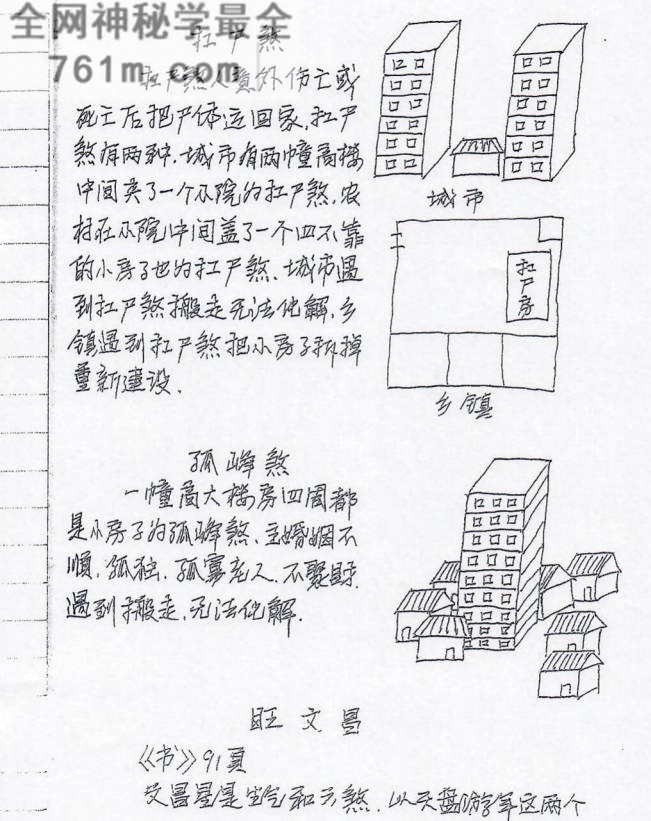 全网神秘学最全
761m.com
扛尸煞
扛尸煞人意外伤亡或
死亡后把尸体运回家,扛尸
煞有两种.城市有两幢高楼
中间夹了一个小院为扛尸煞,农
村在小院中间盖了一个四不靠
的小房子也为扛尸煞.城市遇
到扛尸煞搬走无法化解,乡
镇遇到扛尸煞把小房子拆掉
重新建设.
城市
扛尸房
乡镇
孤峰煞
一幢高大楼房四周都
是小房子为孤峰煞,主婚姻不
顺,孤独,孤寡老人,不聚财.
遇到搬走,无法化解.
旺文昌
《书》91页
文昌星是生气和六煞.以天盘游年这两个